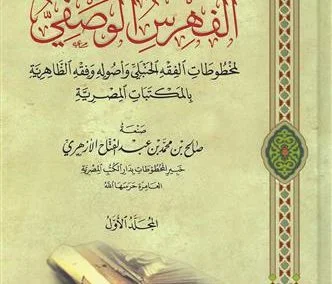 الفهرس الوصفي
لمخطوطات الفقه الحنبلي وأصوله وفقه الظاهرية
بالمكتبات المصرية
صنعة
صالح بن محمد بن عبد الفتاح الأزهري
خبير المخطوطات بدار الكتب المصرية
العامرة حرسها الله
المجلد الأول